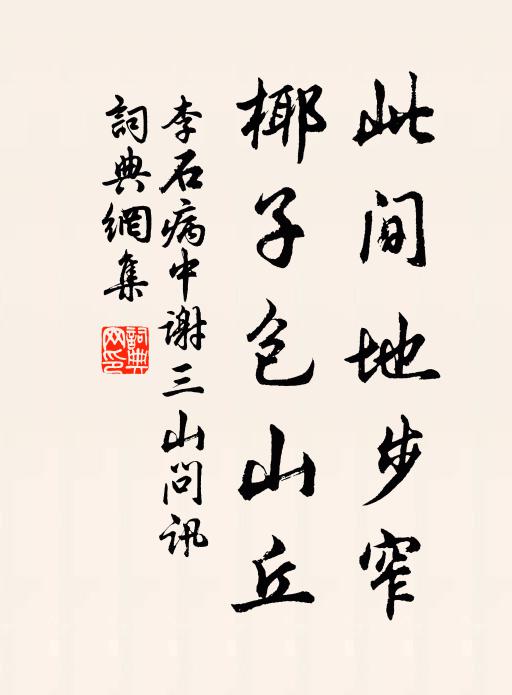 此间地步窄
椰子包山丘
李石病中谢三山问讯
詞典網集
詞典網印